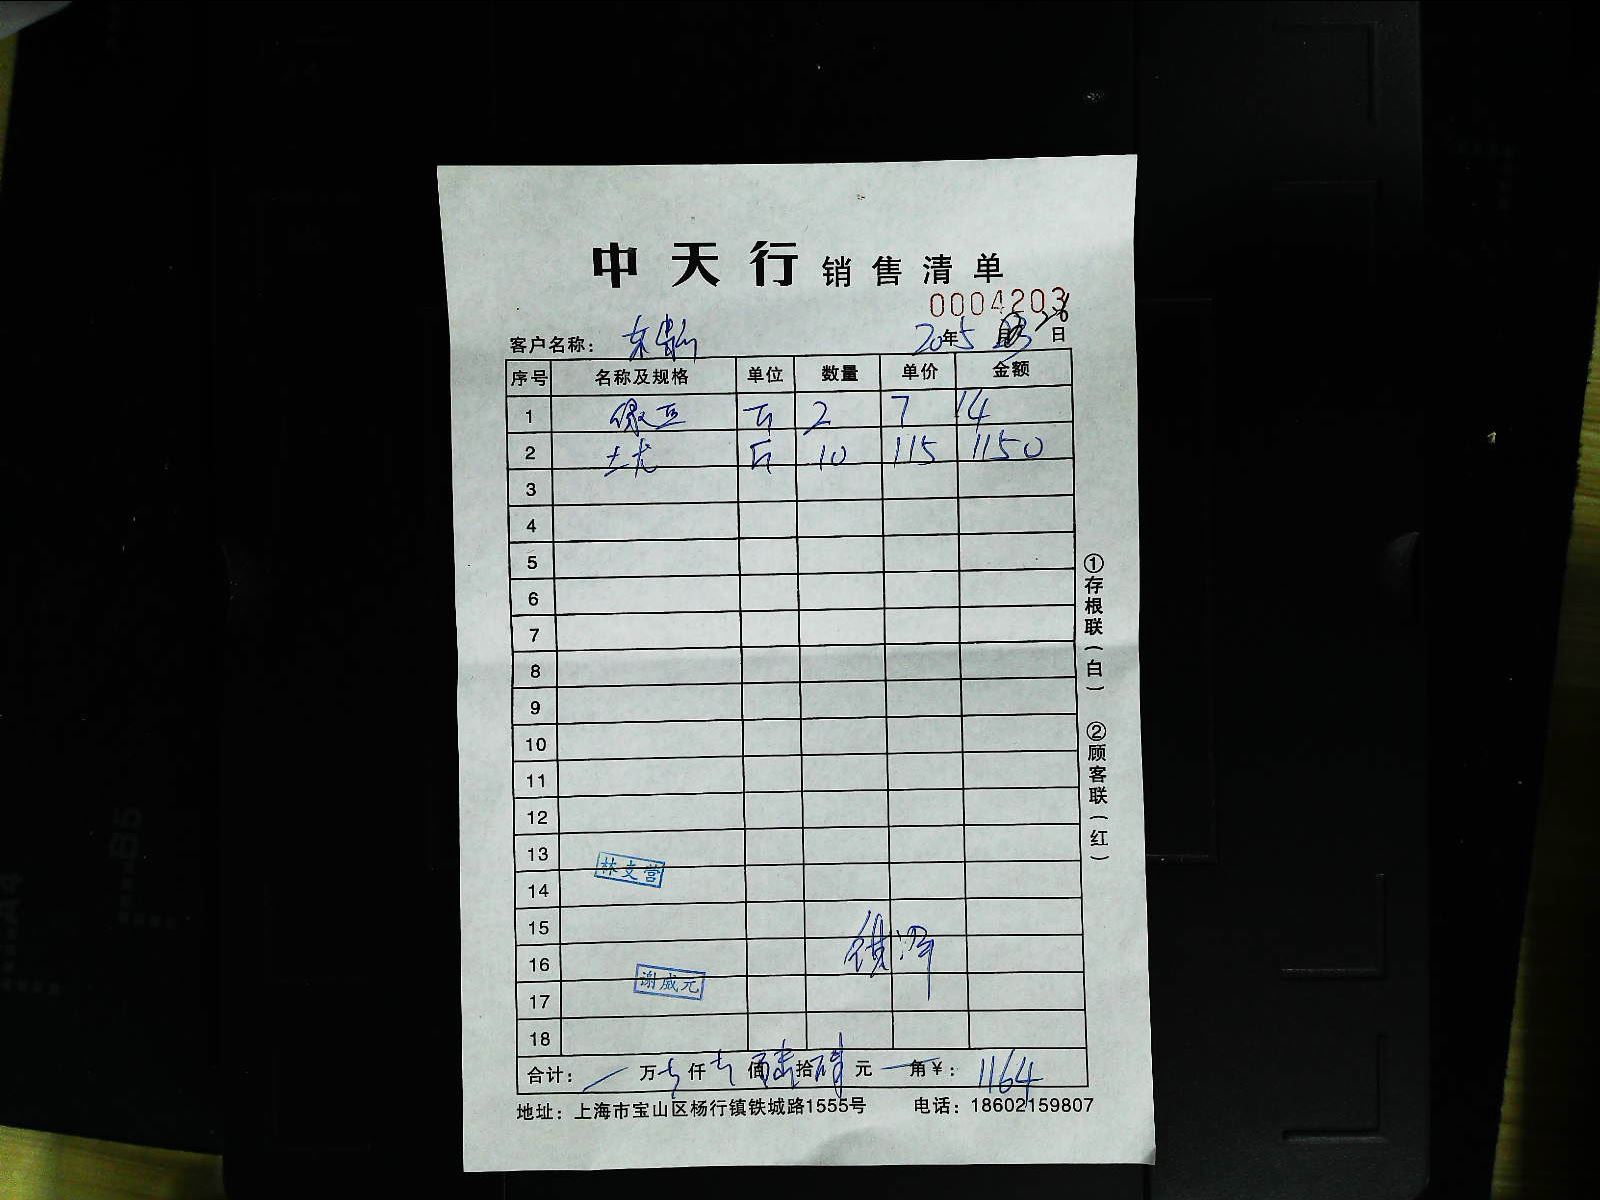 中天行 销售清单
0004203
客户名称： 20年5月26日
序号 名称及规格 单位 数量 单价 金额
1 绿豆 斤 2 7 14
2 斤 10 115 1150
3
4
5
6
7
8
9
10
11
12
13
林文营
14
15
16
谢成元
17
18
合计： 万 仟 佰陆拾肆元 角￥：1164
地址：上海市宝山区杨行镇铁城路1555号 电话：18602159807
①存根联（白） ②顾客联（红）